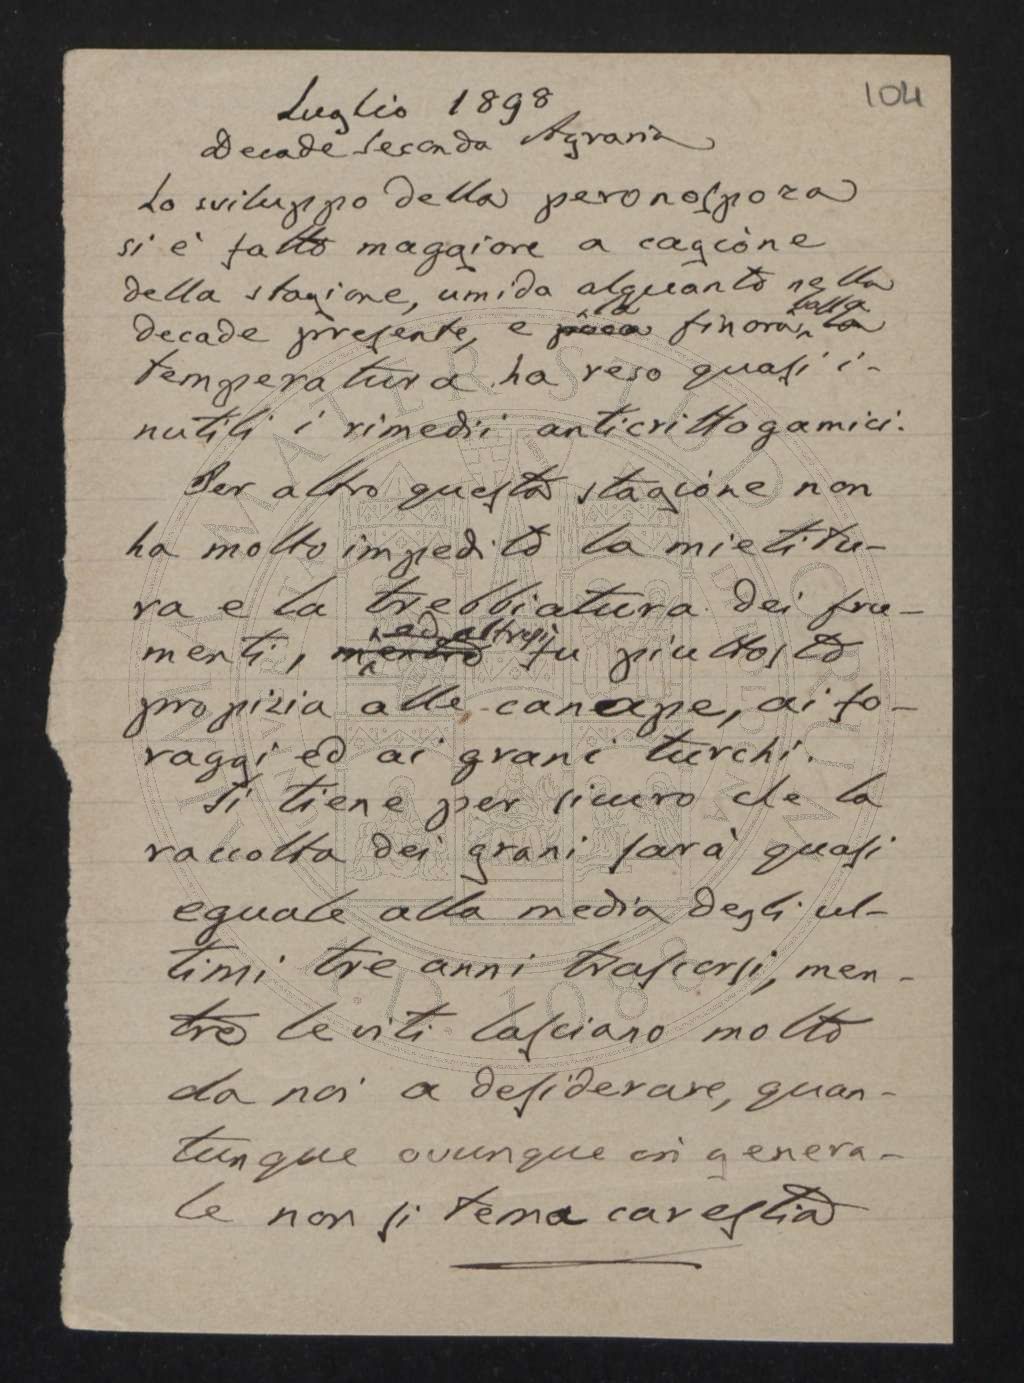 104
Luglio 1898
Decade seconda Agraria
Lo sviluppo della peronospora
si è fatto maggiore a cagione
della stagione, umida alquanto nella
decade presente, e la finora bassa
temperatura ha reso quasi i-
nutili i rimedii anticrittogamici.
Per altro questa stagione non
ha molto impedito la mietitu-
ra e la trebbiatura dei fru-
menti, mentre ed altresì fu piuttosto
propizia alle canape, ai fo-
raggi ed ai grani turchi.
Si tiene per sicuro che la
raccolta dei grani sarà quasi
eguale alla media degli ul-
timi tre anni trascorsi, men-
tre le viti lasciano molto
da noi a desiderare, quan-
tunque ovunque in genera-
le non si tema carestia
ALMA MATER STUDIORUM
A.D. 1088